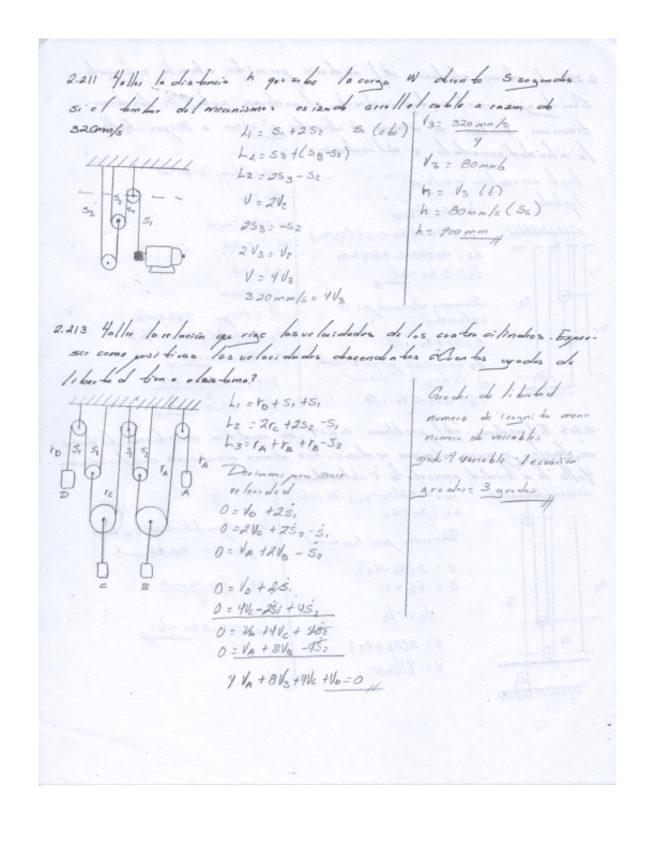 2.211 Hallar la distancia h que sube la carga W durante 5 segundos
si el tambor del mecanismos es izado arrolla el cable a razon de
320mm/s
L1 = S1 + 2S2 S1 (cte)
L2 = S3 + (S3-S2)
L2 = 2S3 - S2
V = 2V2
2S3 = -S2
2V3 = V2
V = 4V3
320 mm/s = 4V3
V3 = 320 mm/s
4
V2 = 80mm/s
h = V3 (t)
h = 80mm/s (5s)
h = 400 mm
S3
S2
S1
2.213 Hallar la relación que rige las velocidades de los cuatro cilindros. Expre-
sar como positivas las velocidades descendentes ¿Cuantos grados de
libertad tiene el sistema?
L1 = rD + S1 + S1
L2 = 2rc + 2S2 - S1
L3 = rA + rB + rB - S2
Derivamos para sacar
velocidad
0 = VD + 2Ṡ1
0 = 2VC + 2Ṡ2 - Ṡ1
0 = VA + 2VB - Ṡ2
0 = VD + 2Ṡ1
0 = 4VC - 2Ṡ1 + 4Ṡ2
0 = VD + 4VC + 4Ṡ2
0 = VA + 8VB - 4Ṡ2
4VA + 8VB + 4VC + VD = 0
Grados de libertad
numero de incognita menos
numero de variables
grad: 4 variable - 1 ecuación
grados = 3 grados
rD
S1
rC
rA
rA
D
A
C
B